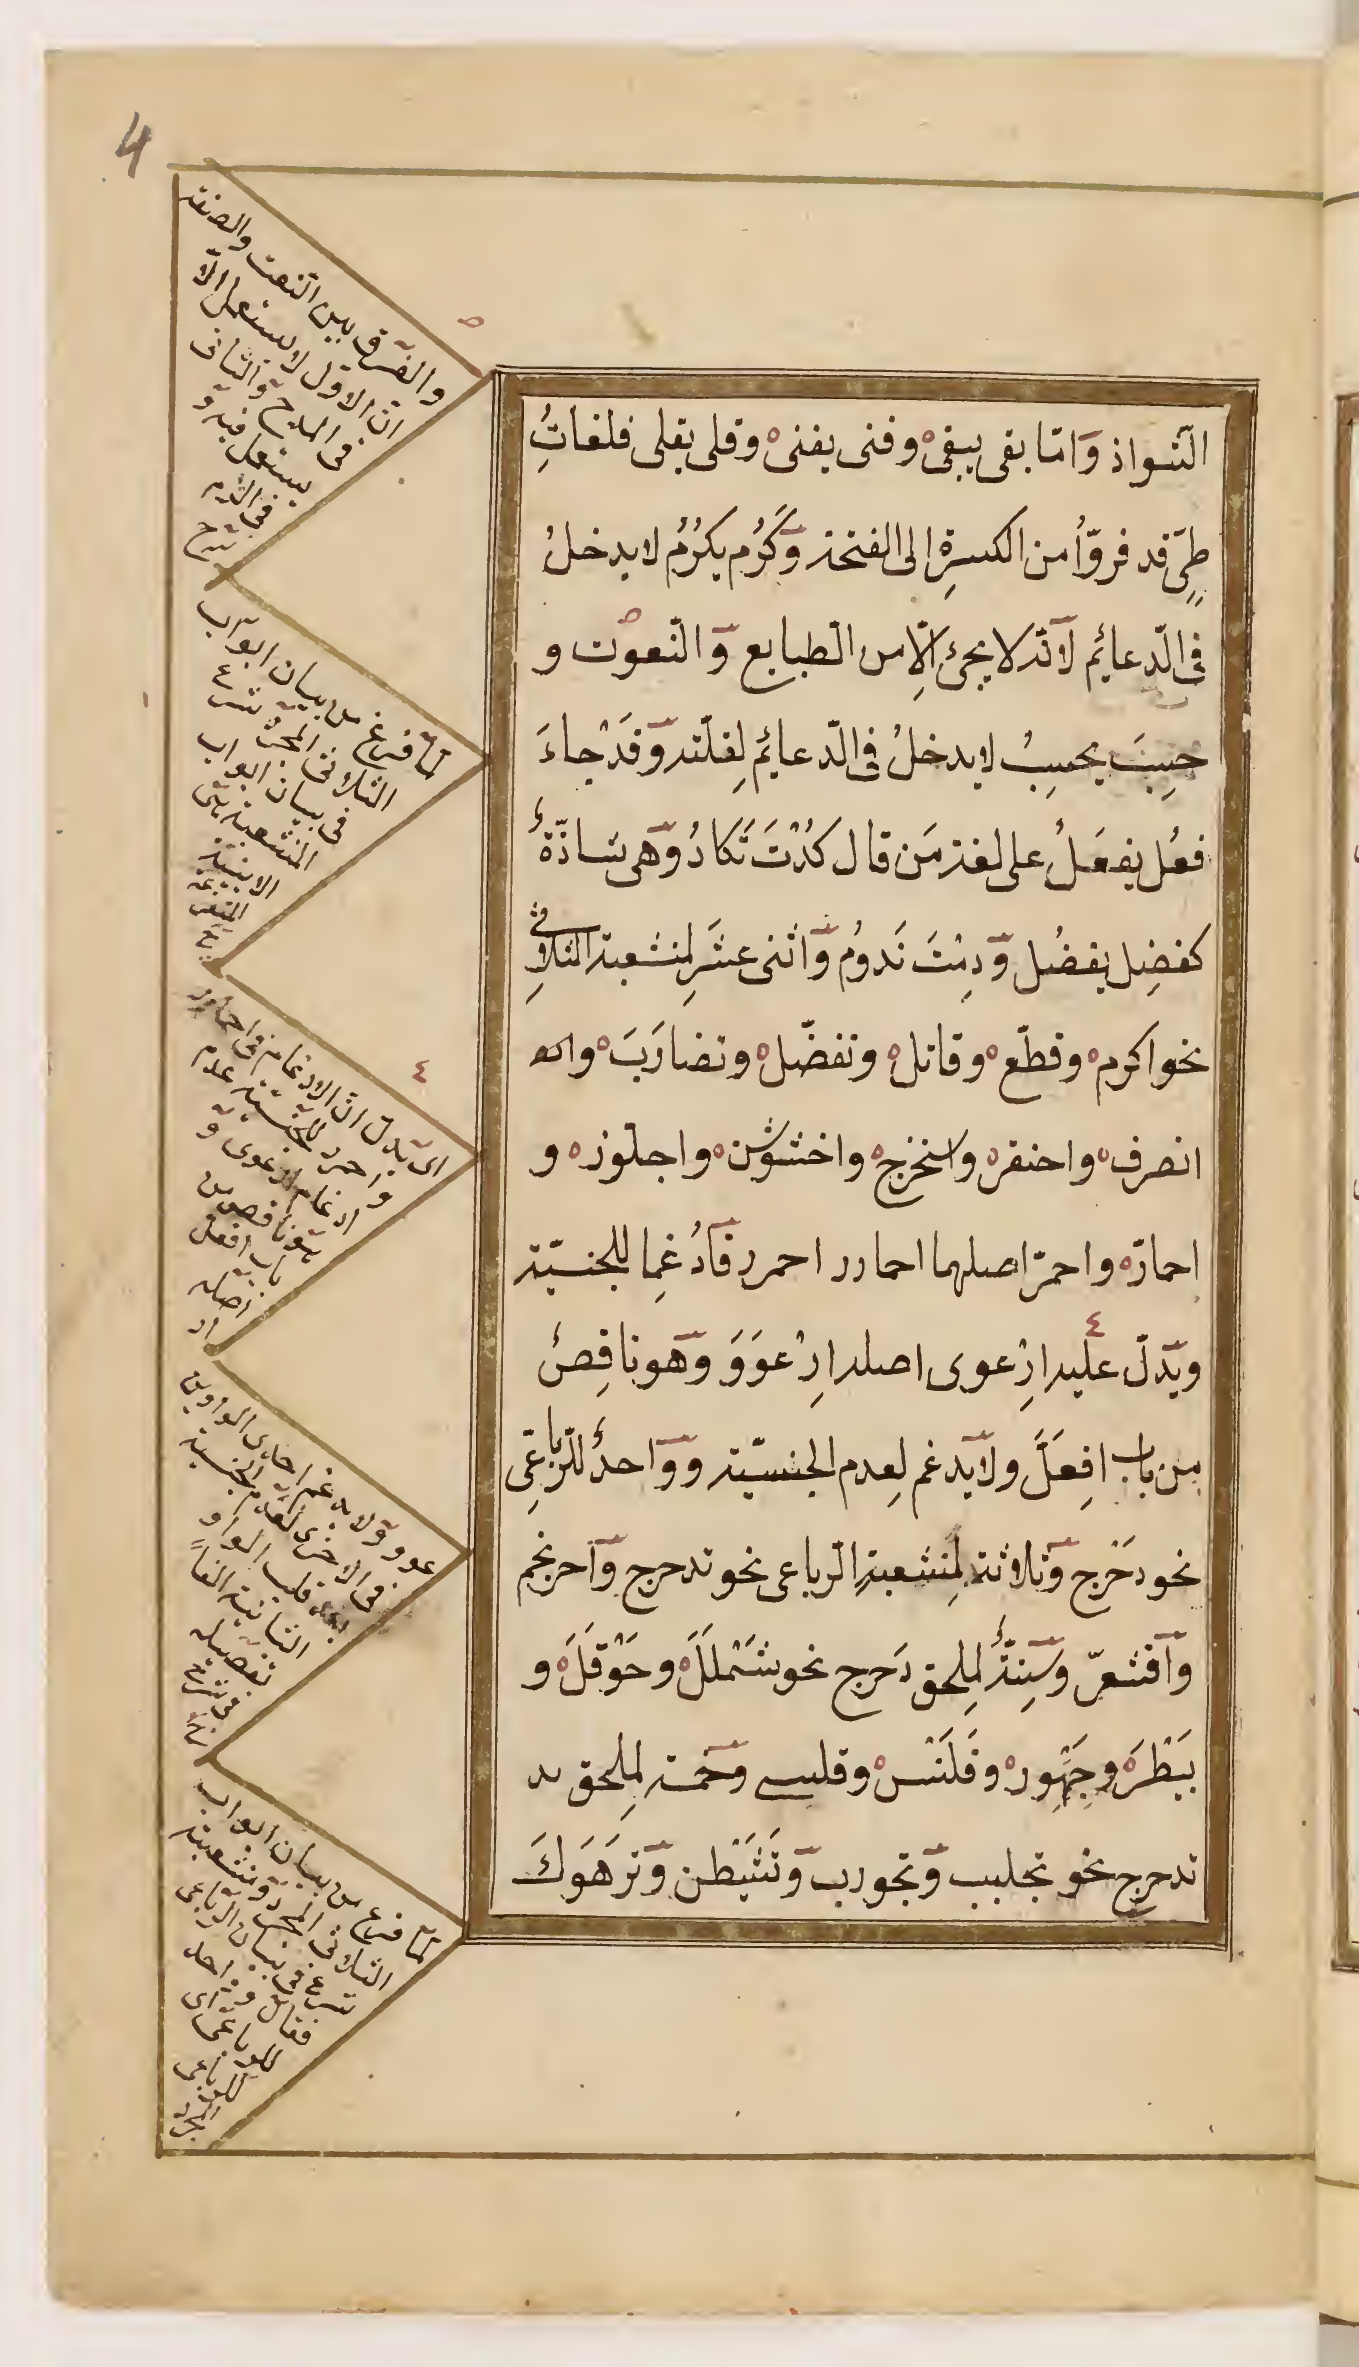 الشواذ وَامّا بقى يبقى وفنى يفنى وقلى يقلى فلغاتُ
طيّ قد فرّوُا من الكسرةِ الى الفتحة وَكَرُم يكرُمُ لا يدخلُ
فى الدّعائِم لانّه لا يجئ اِلّا من الطبايع وَالنّعوت و
حسِبَ يحسِبُ لا يدخلُ فى الدّعائِم لِقلّته وَقَدْ جاءَ
فعُل يفعَلُ على لغة مَن قال كُدْتَ تَكادُ وَهى شاذّةٌ
كفضِل يفضُل وَدِمْتَ تَدوُم وَاثنى عشَر لِمنشعبة الثلاثى
نحو اكرم وقطّع وقاتل وتفضّل وتضارَبَ و
انصرف واحتقر واستخرج واخشوشن واجلوّذ و
احمارّ واحمرّ اصلهما احمارر احمرر فَادُغِما للجنسيّة
ويدلّ عليه اِرْعوى اصله اِرْعوَوَ وَهو ناقِصٌ
من باب افعَلَّ ولا يدغم لِعدم الجنسيّة وَوَاحدٌ للرّباعِى
نحو دَحْرج وَثلاثة لِمنشعبةِ الرباعى نحو تدحرج وَاحرنجم
وَاقشعرّ وَسِتّةٌ لِملحق دَحرج نحو شَمْلَلَ وحَوْقَلَ و
بَيْطَرَ وجَهْور وقَلَنْسَ وقلسى وَخمسة لِملحق
تدحرج نحو تجلبب وَتجورب وَتَشَيْطن وَتَرَهْوَكَ
والفرق بين النعت والصفة
انّ الاوّل لا يستعمل الّا
فى المدح والثانى
يستعمل فيه و
فى الذم
شرح
لمّا فرغ من بيان ابواب
الثلاثى المجرّد شرع
فى بيان ابواب
المنشعبة
اى يدل انّ الادغام فى احمارر
و احمرر للجنسيّة عدم
ادغام ارعوى و
هو ناقص من
باب افعلّ
اصله
ار
عوو ولا يدغم احدى الواوين
فى الاخرى لعدم الجنسية
قلب الواو
الثانية الفاً
تفصيله
فى شرح
لمّا فرغ من بيان ابواب
الثلاثى المجرد ومنشعبة
شرع فى بيان الرباعى
فقال وواحد
للرباعى اى
للرباعى
المجرد
4